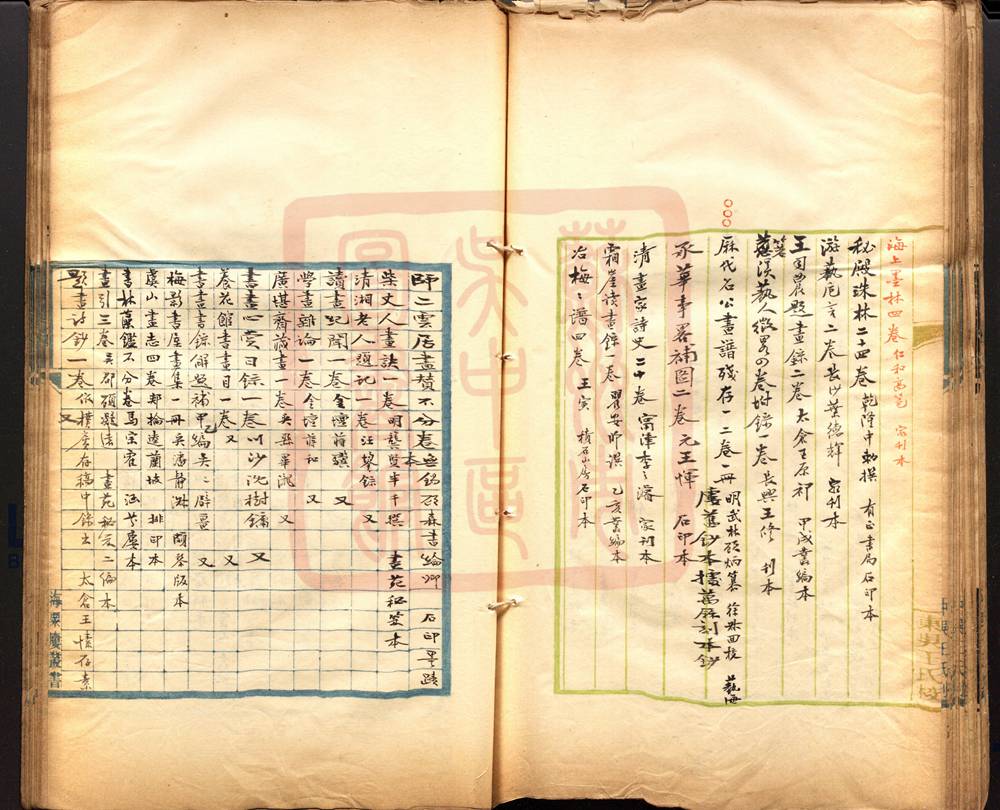 海上墨林四卷 仁和高邕 家刊本
秘殿珠林二十四卷 乾隆中勅撰 有正書局石印本
游藝卮言二卷 長沙葉德輝 家刊本
王司農題畫錄二卷 太倉王原祁 甲戌叢編本
慈溪藝人徵畧四卷附錄一卷 長興王修 刊本
歷代名公畫譜殘存一二卷一冊 明武林顧炳纂 徐叔回校
承華事畧補圖二卷 元王惲 石印本
清畫家詩史二十卷 甯津李濬之 家刊本
霜崖讀畫錄一卷 瞿安師撰 乙亥叢編本
冶梅梅譜四卷 王寅 積石山房石印本
師二雲居畫贅不分卷 無錫 石印墨蹟
柴丈人畫訣一卷 明龔賢半千撰 畫苑秘笈本
清湘老人題記一卷 汪繹辰 又
讀畫紀聞一卷 金壇蔣驥 又
學畫雜論一卷 金壇蔣和 又
廣堪齋藏畫一卷 吳縣畢瀧 又
書畫心賞日錄一卷 川沙沈樹鏞 又
養花館書畫目一卷 又 又
書畫書錄解題補甲乙編 吳辟畺 又
梅影書屋畫集一冊 吳湖帆 潘靜淑 版本
虞山畫志四卷 郟掄逵蘭坡 排印本
書林藻鑑不分卷 馬宗霍 本
畫引三卷 吳郡顧凝遠 畫苑秘笈二編本
題畫詩鈔一卷 太倉王愫存素
海粟樓叢書
東吳王氏校